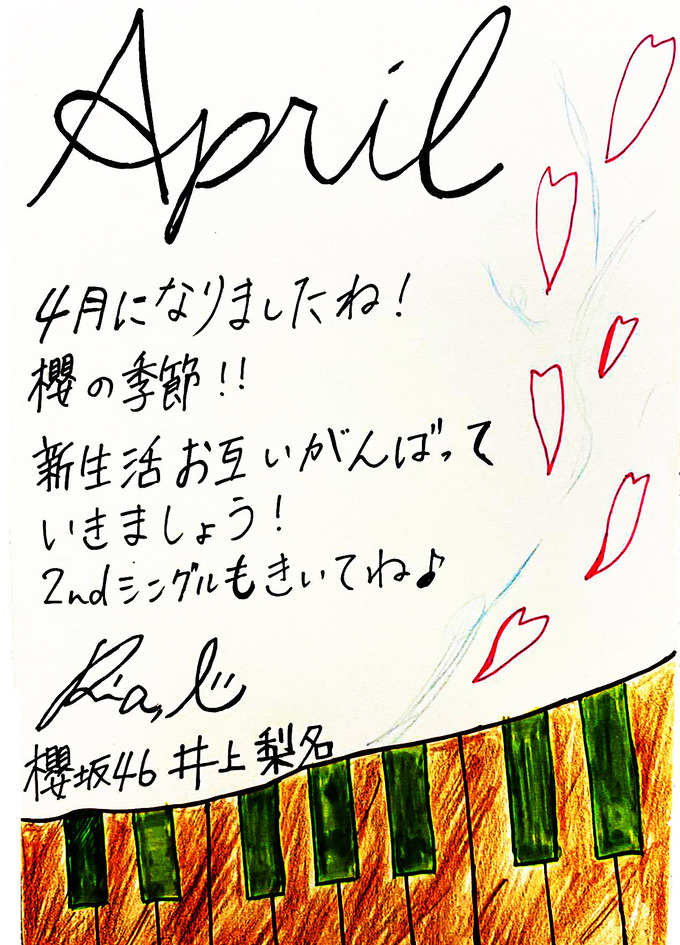 April
4月になりましたね!
櫻の季節!!
新生活お互いがんばって
いきましょう!
2ndシングルもきいてね♪
櫻坂46 井上梨名